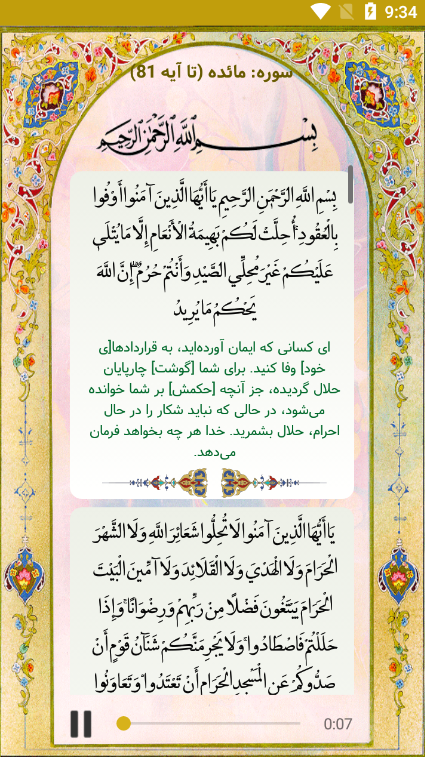 9:34
سوره: مائده (تا آیه 81)
بِسْمِ اللَّهِ الرَّحْمَٰنِ الرَّحِيمِ
بِسْمِ اللَّهِ الرَّحْمَنِ الرَّحِيمِ يَا أَيُّهَا الَّذِينَ آمَنُوا أَوْفُوا
بِالْعُقُودِ ۚ أُحِلَّتْ لَكُمْ بَهِيمَةُ الْأَنْعَامِ إِلَّا مَا يُتْلَىٰ
عَلَيْكُمْ غَيْرَ مُحِلِّي الصَّيْدِ وَأَنْتُمْ حُرُمٌ ۗ إِنَّ اللَّهَ
يَحْكُمُ مَا يُرِيدُ
ای کسانی که ایمان آورده‌اید، به قراردادها[ی
خود] وفا کنید. برای شما [گوشت] چارپایان
حلال گردیده، جز آنچه [حکمش] بر شما خوانده
می‌شود، در حالی که نباید شکار را در حال
احرام، حلال بشمرید. خدا هر چه بخواهد فرمان
می‌دهد.
يَا أَيُّهَا الَّذِينَ آمَنُوا لَا تُحِلُّوا شَعَائِرَ اللَّهِ وَلَا الشَّهْرَ
الْحَرَامَ وَلَا الْهَدْيَ وَلَا الْقَلَائِدَ وَلَا آمِّينَ الْبَيْتَ
الْحَرَامَ يَبْتَغُونَ فَضْلًا مِنْ رَبِّهِمْ وَرِضْوَانًا ۚ وَإِذَا
حَلَلْتُمْ فَاصْطَادُوا ۚ وَلَا يَجْرِمَنَّكُمْ شَنَآنُ قَوْمٍ أَنْ
صَدُّوكُمْ عَنِ الْمَسْجِدِ الْحَرَامِ أَنْ تَعْتَدُوا ۘ وَتَعَاوَنُوا
0:07